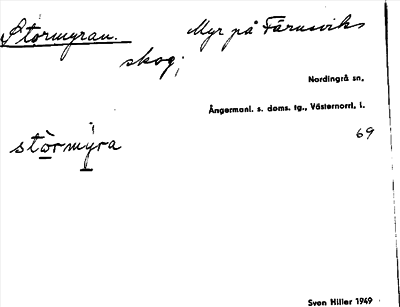 Stormyran. Myr på Färnsviks
skog;
Nordingrå sn.
Ångermanl. s. doms. tg., Västernorrl. l.
69
stòrmýra
Sven Hiller 1949